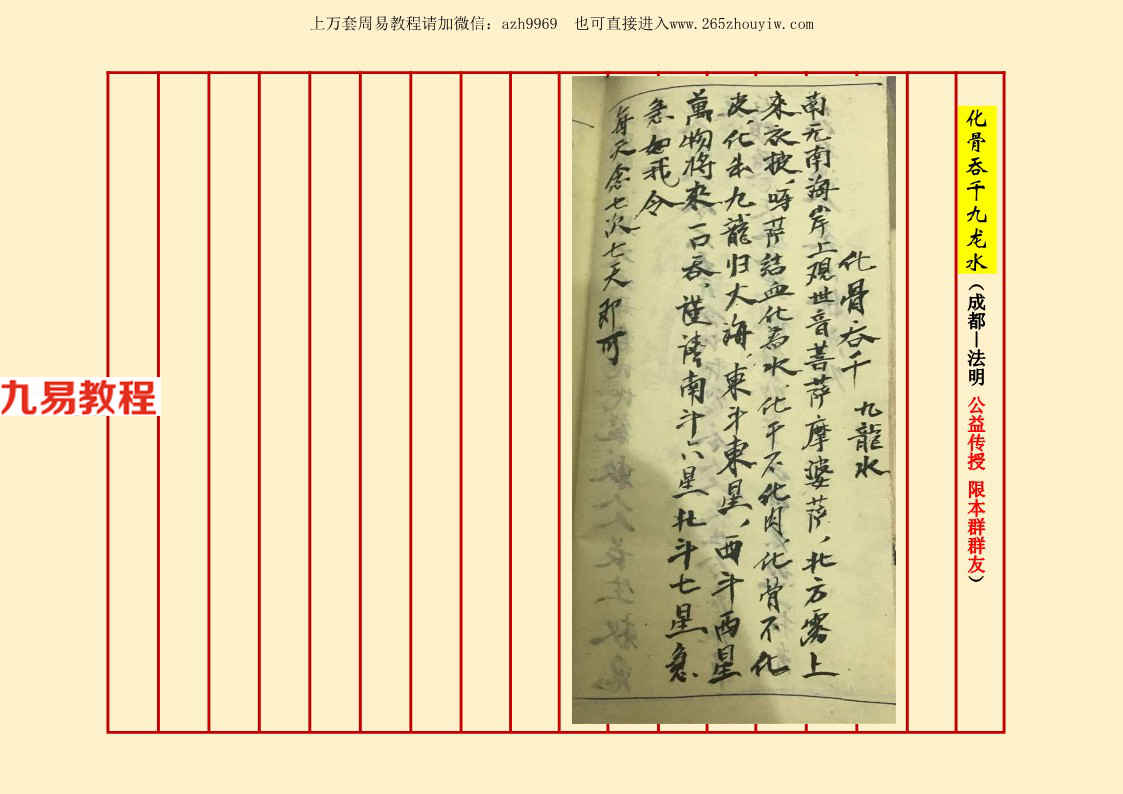 上万套周易教程请加微信：azh9969　也可直接进入www.265zhouyiw.com
化骨吞千九龙水（成都—法明 公益传授 限本群群友）
化骨吞千　九龍水
南无南海岸上观世音菩萨摩婆萨，北方雾上
來衣披，呀菩結血化为水、化千不化肉、化骨不化
皮、化出九龍归大海，東斗東星，西斗西星
萬物将來一口吞，谨请南斗六星北斗七星急
急如我令
每天念七次七天即可
九易教程